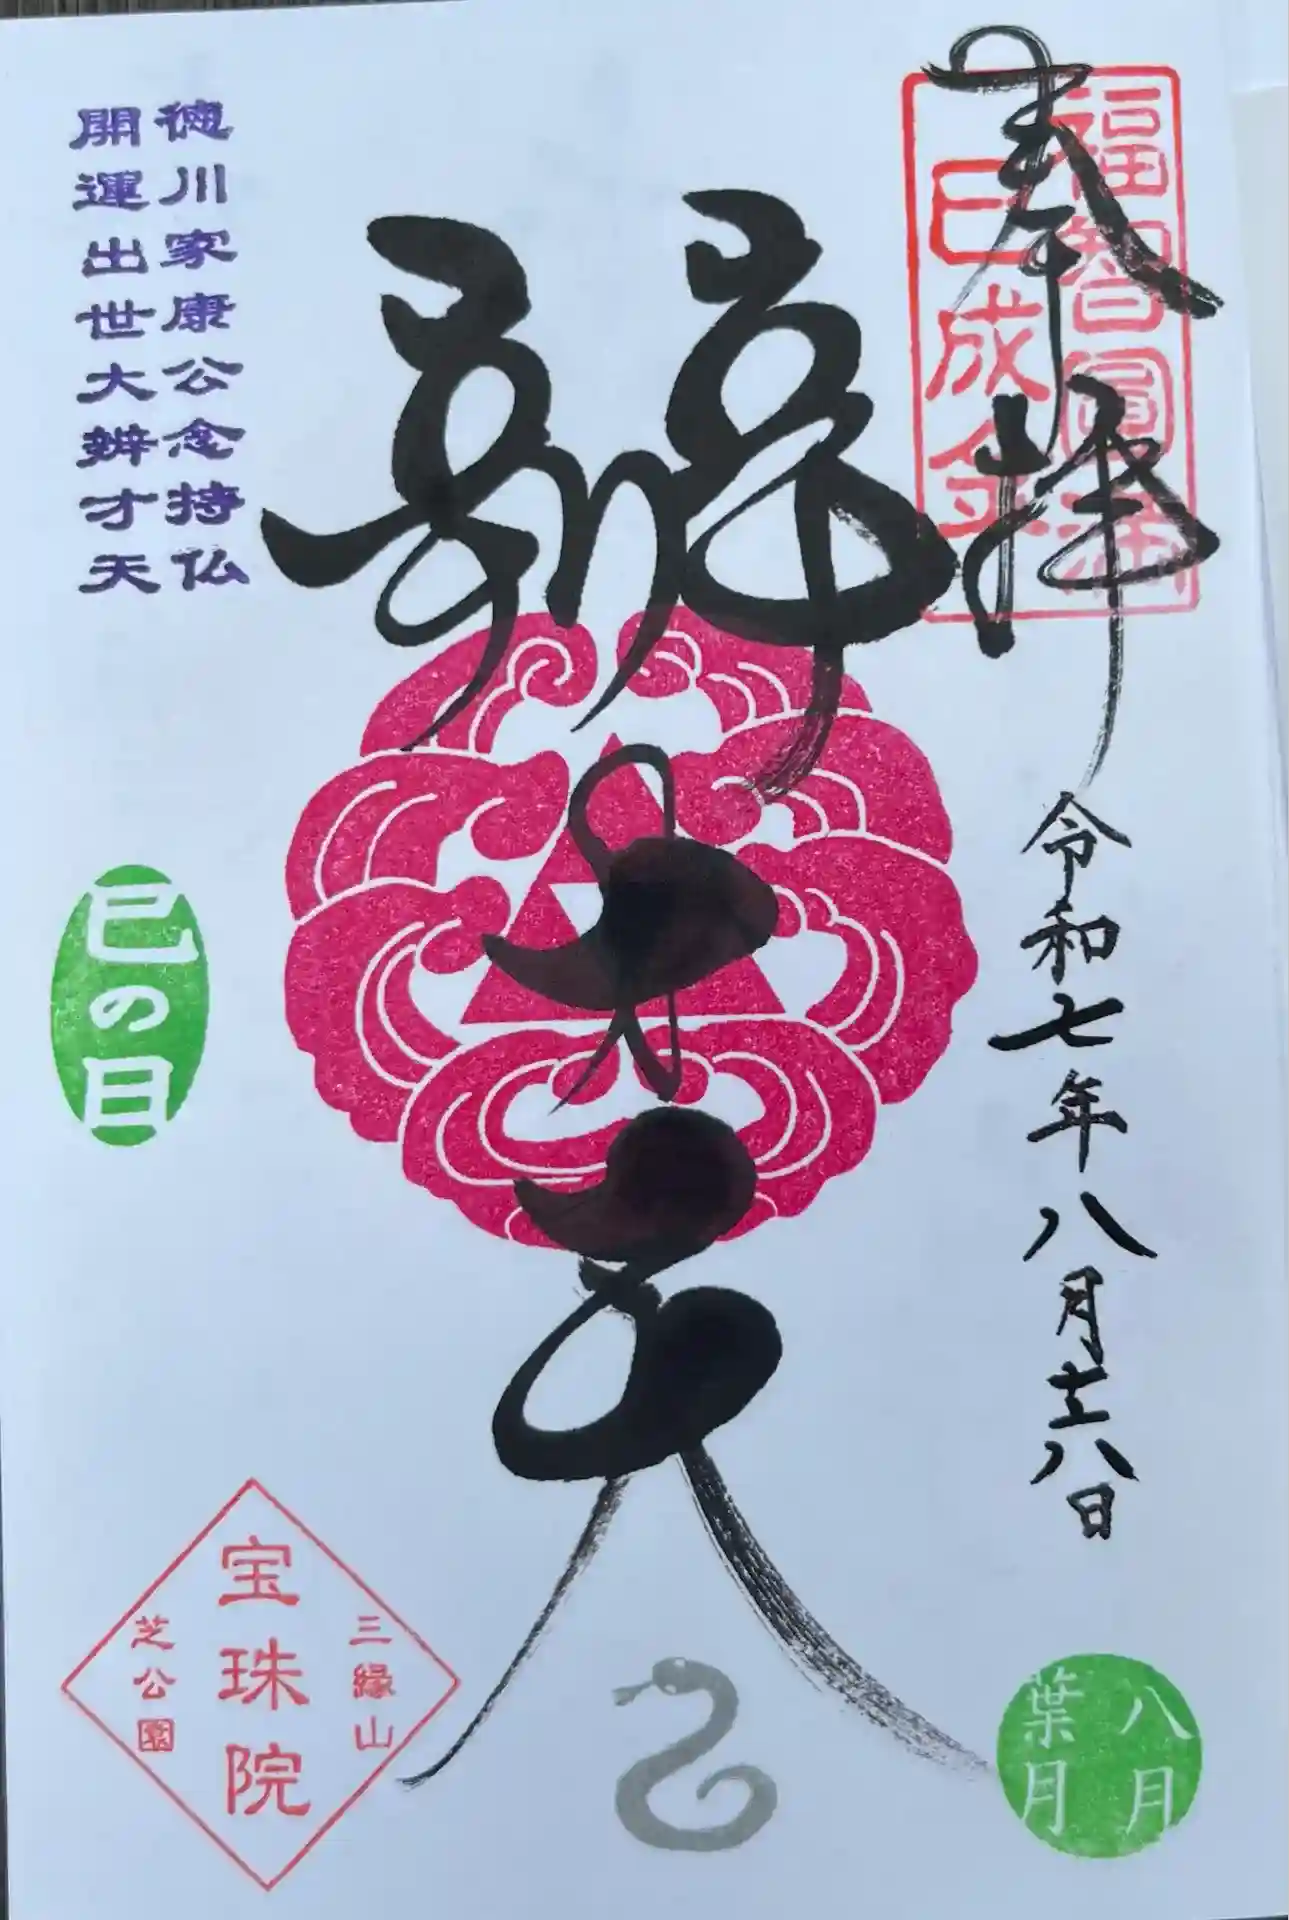 奉拝
福智圓満
巳成金
令和七年八月十八日
辯才天
徳川家康公念持仏
開運出世大辨才天
巳の日
八月
葉月
三縁山
宝珠院
芝公園